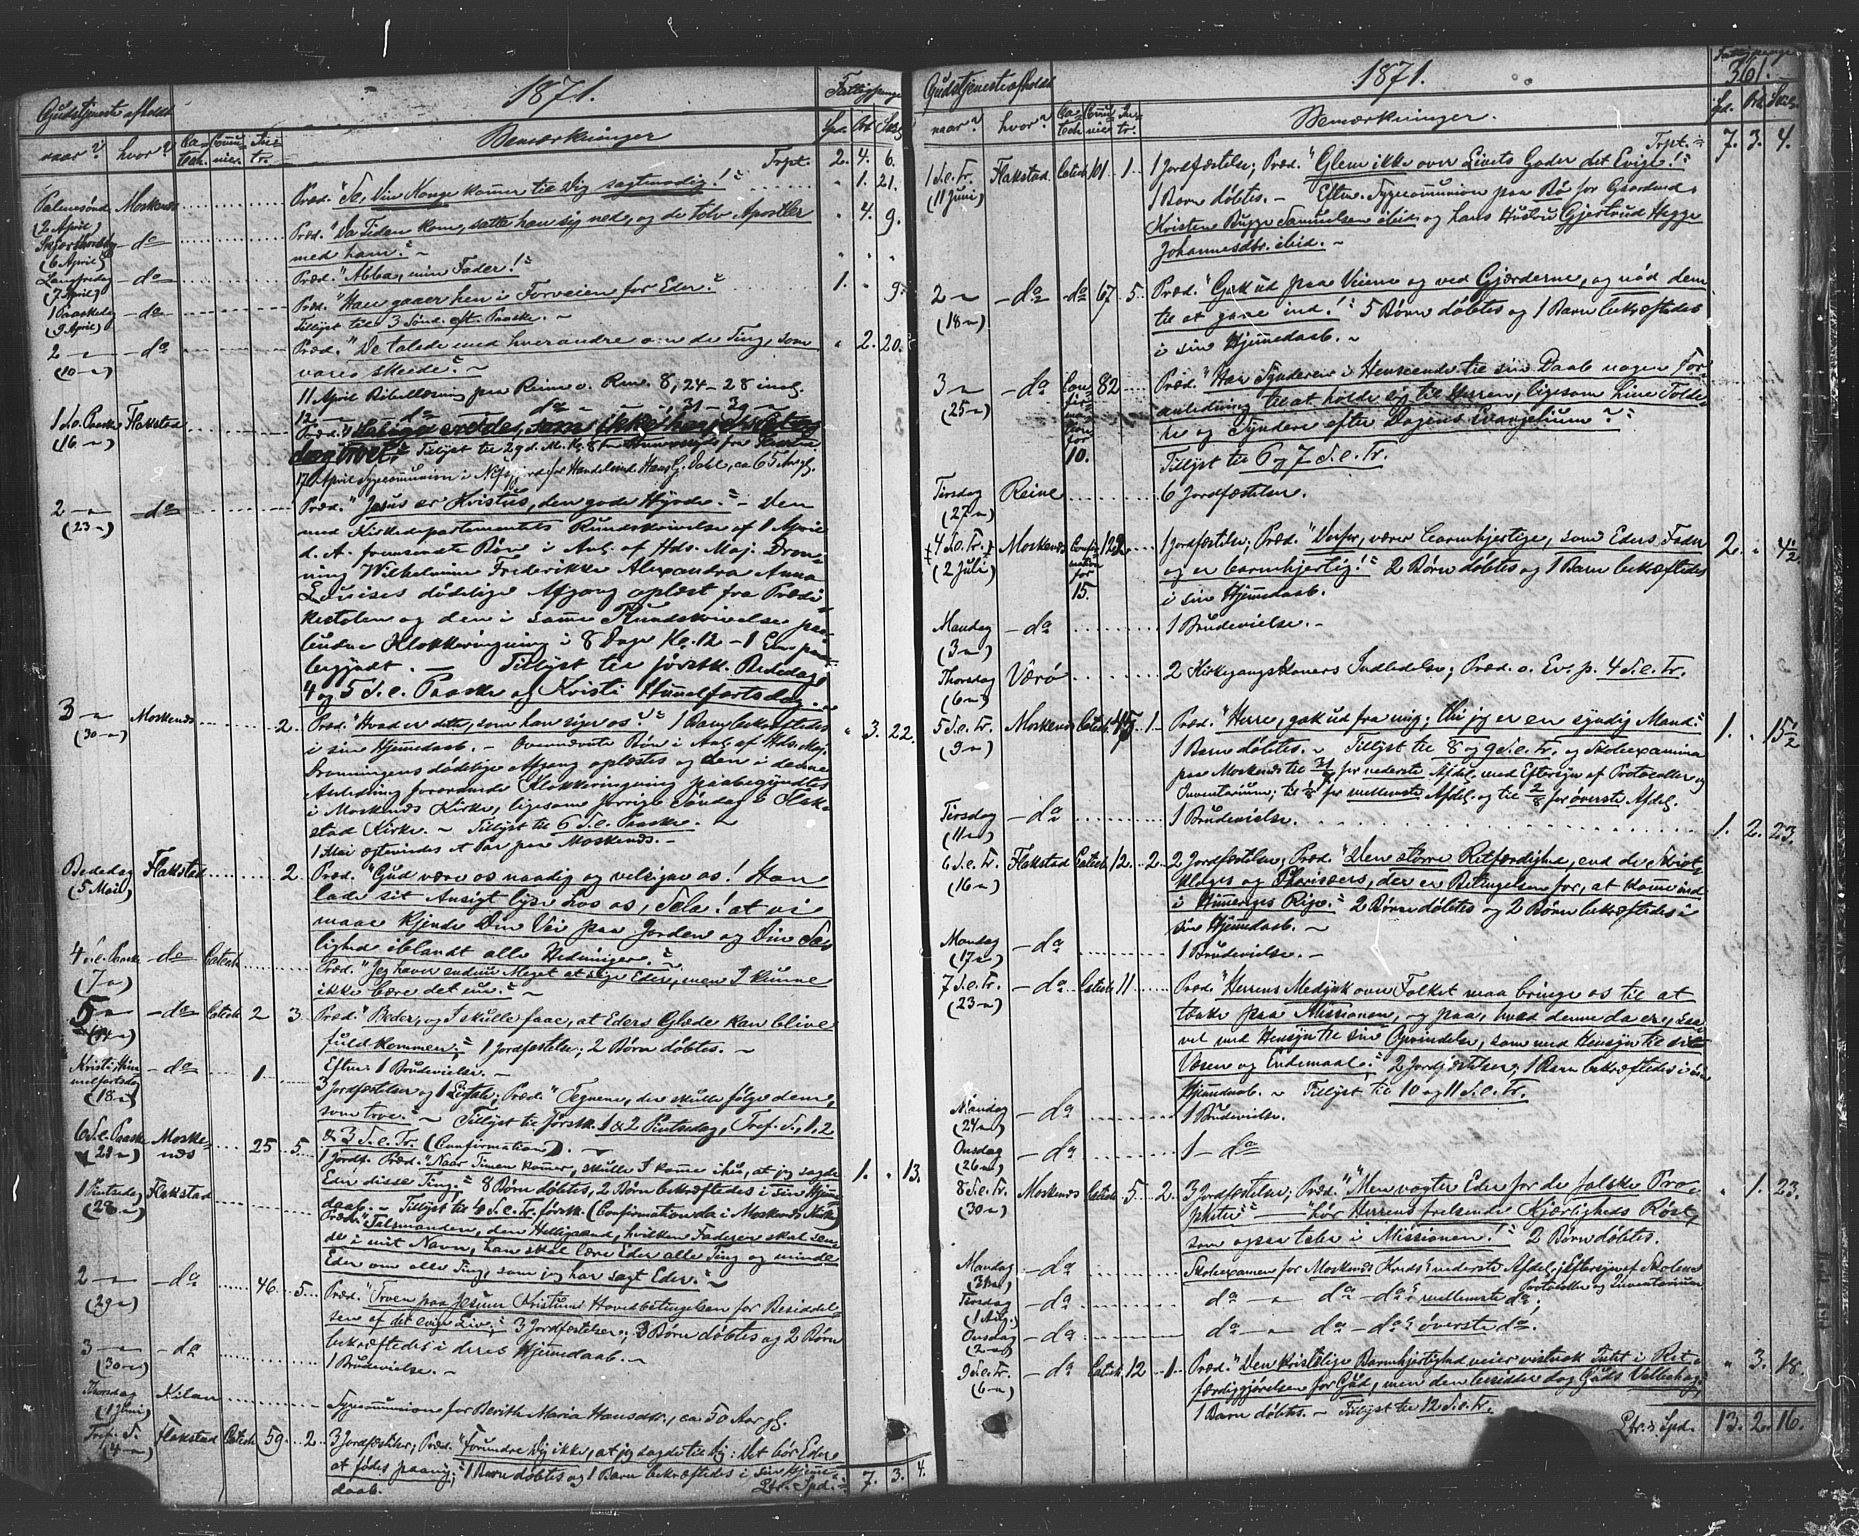 1871.
Gudstjeneste afholdt
Fattigpenge
naar? hvor? Ca-tech. Comu-nic. In-tr. Bemærkninger Spd. Ort Skill.
Trpt. 2. 4. 6.
Palmesønd. (2 April) Moskenæs Præd. "Se, Din Konge kommer til Dig sagtmodig!" " 1. 21.
Skjærthorsdag (6 April) - do Præd. "Da Tiden kom, satte han sig ned, og de tolv Apostler " 4. 9.
med ham."
Langfredag (7 April) - do Præd. "Abba, min Fader!" " " "
1 Paaskedag (9 April) - do Præd. "Han gaaer hen i Forveien for Eder." 1. " 9.
Tillyst til 3 Sønd. eft. Paaske. ~
2 - (10 -) - do Præd. "De talede med hverandre om de Ting, som " 2. 20.
vare skeede." ~
11 April Bibellæsning paa Reine o. Rom. 8, 24-28 incl.
12 - do - do - 31-39 -
1 S. e. Paaske (16 -) Flakstad Præd. " som ikke have seet og
dog troet." Tillyst til
17 April Sygecommunion i for Hans G. Dahl, ca 65 Aar gl.
2 - (23 -) - do Præd. "Jesus er Kristus, den gode Hyrde." - Den
med Kirkedepartementets Rundskrivelse af 1 April
d. A. fremsendte Bøn i Anl. af Hds. Maj. Dron-
ning Wilhelmine Frederikke Alexandra Anna
Louises dødelige Afgang oplæst fra Prædi-
kestolen og den i samme Rundskrivelse paa-
budne Klokkeringning i 8 Dage Kl. 12 - 1 Em. paa-
begyndt. - Tillyst til førstk. Bededag,
4 og 5 S. e. Paaske og Kristi Himmelfartsdag. ~
3 - (30 -) Moskenæs 2. Præd. "Hvad er dette, som han siger os?" 1 Barn bekræftedes " 3. 22.
i sin Hjemmedaab. - Ovennævnte Bøn i Anl. af Hds. Maj.
Dronningens dødelige Afgang oplæstes og den i denne
Anledning forordnede Klokkeringning paabegyndtes
i Moskenæs Kirke, ligesom forrige Søndag i Flak-
stad Kirke. ~ Tillyst til 6 S. e. Paaske. ~
1 Mai ægteviedes et Par paa Moskenæs. -
Bededag (5 Mai) Flakstad 2 Præd. "Gud være os naadig og velsigne os! Han
lade sit Ansigt lyse hos os, Sela! at vi
maae kjende Din Vei paa Jorden og Din Sa-
lighed iblandt alle Hedninger." ~
4 S. e. Paaske (7 -) - do Catech. Præd. "Jeg haver endnu Meget at sige Eder, men I kunne
ikke bære det nu." ~
5 - (14 -) - do Catech. 2 3. Præd. "Beder, og I skulle faae, at Eders Glæde kan blive
fuldkommen." 1 Jordfæstelse; 2 Børn døbtes. ~
Efterm. 1 Brudevielse. ~
Kristi Him-melfartsdag (18 -) - do 1 3 Jordfæstelser og 1 Ligtale; Præd. "Tegnene, der skulle følge dem,
som troe." ~ Tillyst til førstk. 1 & 2 Pintsedag, Tref. S., 1, 2
& 3 S. e. Tr. (Confirmation). ~
6 S. e. Paaske (21 -) Moske-næs 25 5. 1 Jordf. Præd. "Naar Timen kommer, skulle I komme ihu, at jeg sagde 1. " 13.
Eder disse Ting." 8 Børn døbtes, 2 Børn bekræftedes i sin Hjemme-
daab. - Tillyst til 4 S. e. Tr. førstk. (Confirmation da i Moskenæs Kirke)
1 Pintsedag (28 -) Flakstad Præd. "Talsmanden, den Helligaand, hvilken Faderen skal sen-
de i mit Navn, han skal lære Eder alle Ting og minde
Eder om alle Ting, som jeg har sagt Eder." ~
2 - (29 -) - do 46. 5. Præd. "Troen paa Jesum Kristum Hovedbetingelsen for Besiddel-
sen af det evige Liv." 3 Jordfæstelser; 3 Børn døbtes og 2 Børn
bekræftedes i deres Hjemmedaab. ~
3 - (30 -) - do 1 Brudevielse. ~
Thorsdag (1 Juni) Kilan Sygecommunion for Berith Maria Hansdtr., ca. 50 Aar gl.
Tref. S. (4 -) Flakstad Catech. 59. 2. 3 Jordfæstelser; Præd. "Forundre Dig ikke, at jeg sagde til Dig: Det bør Eder
at fødes paany." 1 Barn døbtes og 1 Barn bekræftedes i sin Hjemme-
daab. Ltr. Spd. 7. 3. 4.
1871.
361.
Gudstjeneste afholdt
Fattigpenge
naar? hvor? Ca-tech. Comu-nic. In-tr. Bemærkninger. Spd. Ort Skill.
Trpt. 7. 3. 4.
1 S. e. Tr. (11 Juni) Flakstad Catech. 101 1. 1 Jordfæstelse; Præd. "Glem ikke over Livets Goder det Evige!"
1 Barn døbtes. - Efterm. Sygecommunion paa Bø for Gaardmd.
Kristen Bugge Samuelsen ibid. og hans Hustru Gjertrud Hegge
Johannesdtr. ibid. ~
2 - (18 -) - do do 67. 5. Præd. "Gak ud paa Veiene og ved Gjærderne, og nød dem
til at gaae ind!" 5 Børn døbtes og 1 Barn bekræftedes
i sin Hjemmedaab. ~
3 - (25 -) - do Con-fir-ma-tion for 10. 82 Præd. "Har Synderen i Henseende til sin Daab nogen For-
anledning til at holde sig til Herren, ligesom hine Tolde-
re og Syndere efter Dagens Evangelium?"
Tillyst til 6 og 7 S. e. Tr.
Tirsdag (27 -) Reine 6 Jordfæstelser.
4 S. e. Tr. (2 Juli) Moskenæs Confir-mation for 15. 122 1 Jordfæstelse; Præd. "Derfor, værer barmhjertige, som Eders Fader 2. " 4 1/2
og er barmhjertig!" 2 Børn døbtes og 1 Barn bekræftedes
i sin Hjemmedaab.
Mandag (3 -) - do 1 Brudevielse. ~
Thorsdag (6 -) Værø 2 Kirkegangskoners Indledelse; Præd. o. Ev. p. 4 S. e. Tr.
5 S. e. Tr. (9 -) Moskenæs Catech. 1. Præd. "Herre, gak ud fra mig; thi jeg er en syndig Mand." 1. " 15 1/2
1 Barn døbtes. ~ Tillyst til 8 og 9 S. e. Tr. og Skoleexamina
paa Moskenæs til 31/7 for nederste Afdel. med Eftersyn af Protocoller og
Inventarium; til 1/8 for mellemste Afdel. og til 2/8 for øverste Afdel.
Tirsdag (11 -) - do 1 Brudevielse. 1. 2. 23.
6 S. e. Tr. (16 -) Flakstad Catech. 12. 2. 2 Jordfæstelser; Præd. "Den større Retfærdighed, end de Skrift-
kloges og Pharisæers, der er Betingelsen for, at komme ind
i Himmeriges Rige." 2 Børn døbtes og 2 Børn bekræftedes i
sin Hjemmedaab. ~
Mandag (17 -) - do 1 Brudevielse. ~
7 S. e. Tr. (23 -) - do Catech. 11. Præd. "Herrens Medynk over Folket maa bringe os til at
tænke paa Missionen, og paa, hvad denne da er, saa-
vel med Hensyn til sin Oprindelse, som med Hensyn til sit
Væsen og Endemaal." 2 Jordfæstelser; 1 Barn bekræftedes i sin
Hjemmedaab. ~ Tillyst til 10 og 11 S. e. Tr.
Mandag (24 -) - do 1 Brudevielse.
Onsdag (26 -) - do 1 - do
8 S. e. Tr. (30 -) Moskenæs Catech. 5. 2. 3 Jordfæstelser; Præd. "Men vogter Eder for de falske Pro- " 1. 23.
pheter" - "hør Herrens frelsende Kjærligheds Røst,
som ogsaa taler i Missionen!" 2 Børn døbtes.
Mandag (31 -) - do Skoleexamen for Moskenæs Kreds's nederste Afdel.; Eftersyn af Skolens
Protocoller og Inventarium
Tirsdag (1 Aug.) - do do - do - do's mellemste do;
Onsdag (2 -) - do do - do - do's øverste do.
9 S. e. Tr. (6 -) - do Catech. 12 1. Præd. "Den kristelige Barmhjertighed veier vistnok Intet i Ret- " 3. 18.
færdiggjørelsen for Gud, men den besidder dog Guds Velbehag."
1 Barn døbtes. ~ Tillyst til 12 S. e. Tr.
Ltr. Spd. 13. 2. 16.